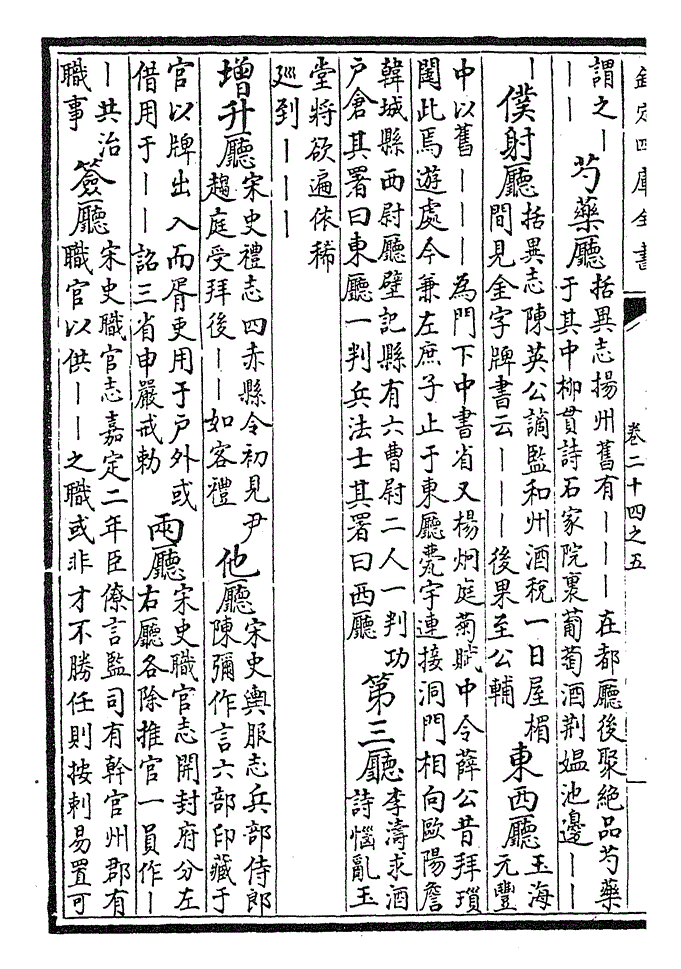 欽定四庫全書
卷二十四之五
謂之｜
｜｜
芍藥廳
括異志揚州舊有｜｜｜在都廳後聚絕品芍藥
于其中柳貫詩石家院裏葡萄酒荆媼池邊｜｜
｜
僕射廳
括異志陳英公謫監和州酒稅一日屋楣
間見金字牌書云｜｜｜後果至公輔
東西廳
玉海
元豐
中以舊｜｜｜為門下中書省又楊炯庭菊賦中令薛公昔拜瑣
闥此焉遊處今兼左庶子止于東廳甍宇連接洞門相向歐陽詹
韓城縣西尉廳壁記縣有六曹尉二人一判功
戶倉其署曰東廳一判兵法士其署曰西廳
第三廳
李濤求酒
詩惱亂玉
堂將欲遍依稀
巡到｜｜｜
增升廳
宋史禮志四赤縣令初見尹
趨庭受拜後｜｜如客禮
他廳
宋史輿服志兵部侍郎
陳彌作言六部印藏于
官以牌出入而胥吏用于戶外或
借用于｜｜詔三省申嚴戒勅
兩廳
宋史職官志開封府分左
右廳各除推官一員作｜
｜共治
職事
簽廳
宋史職官志嘉定二年臣僚言監司有幹官州郡有
職官以供｜｜之職或非才不勝任則按刺易置可